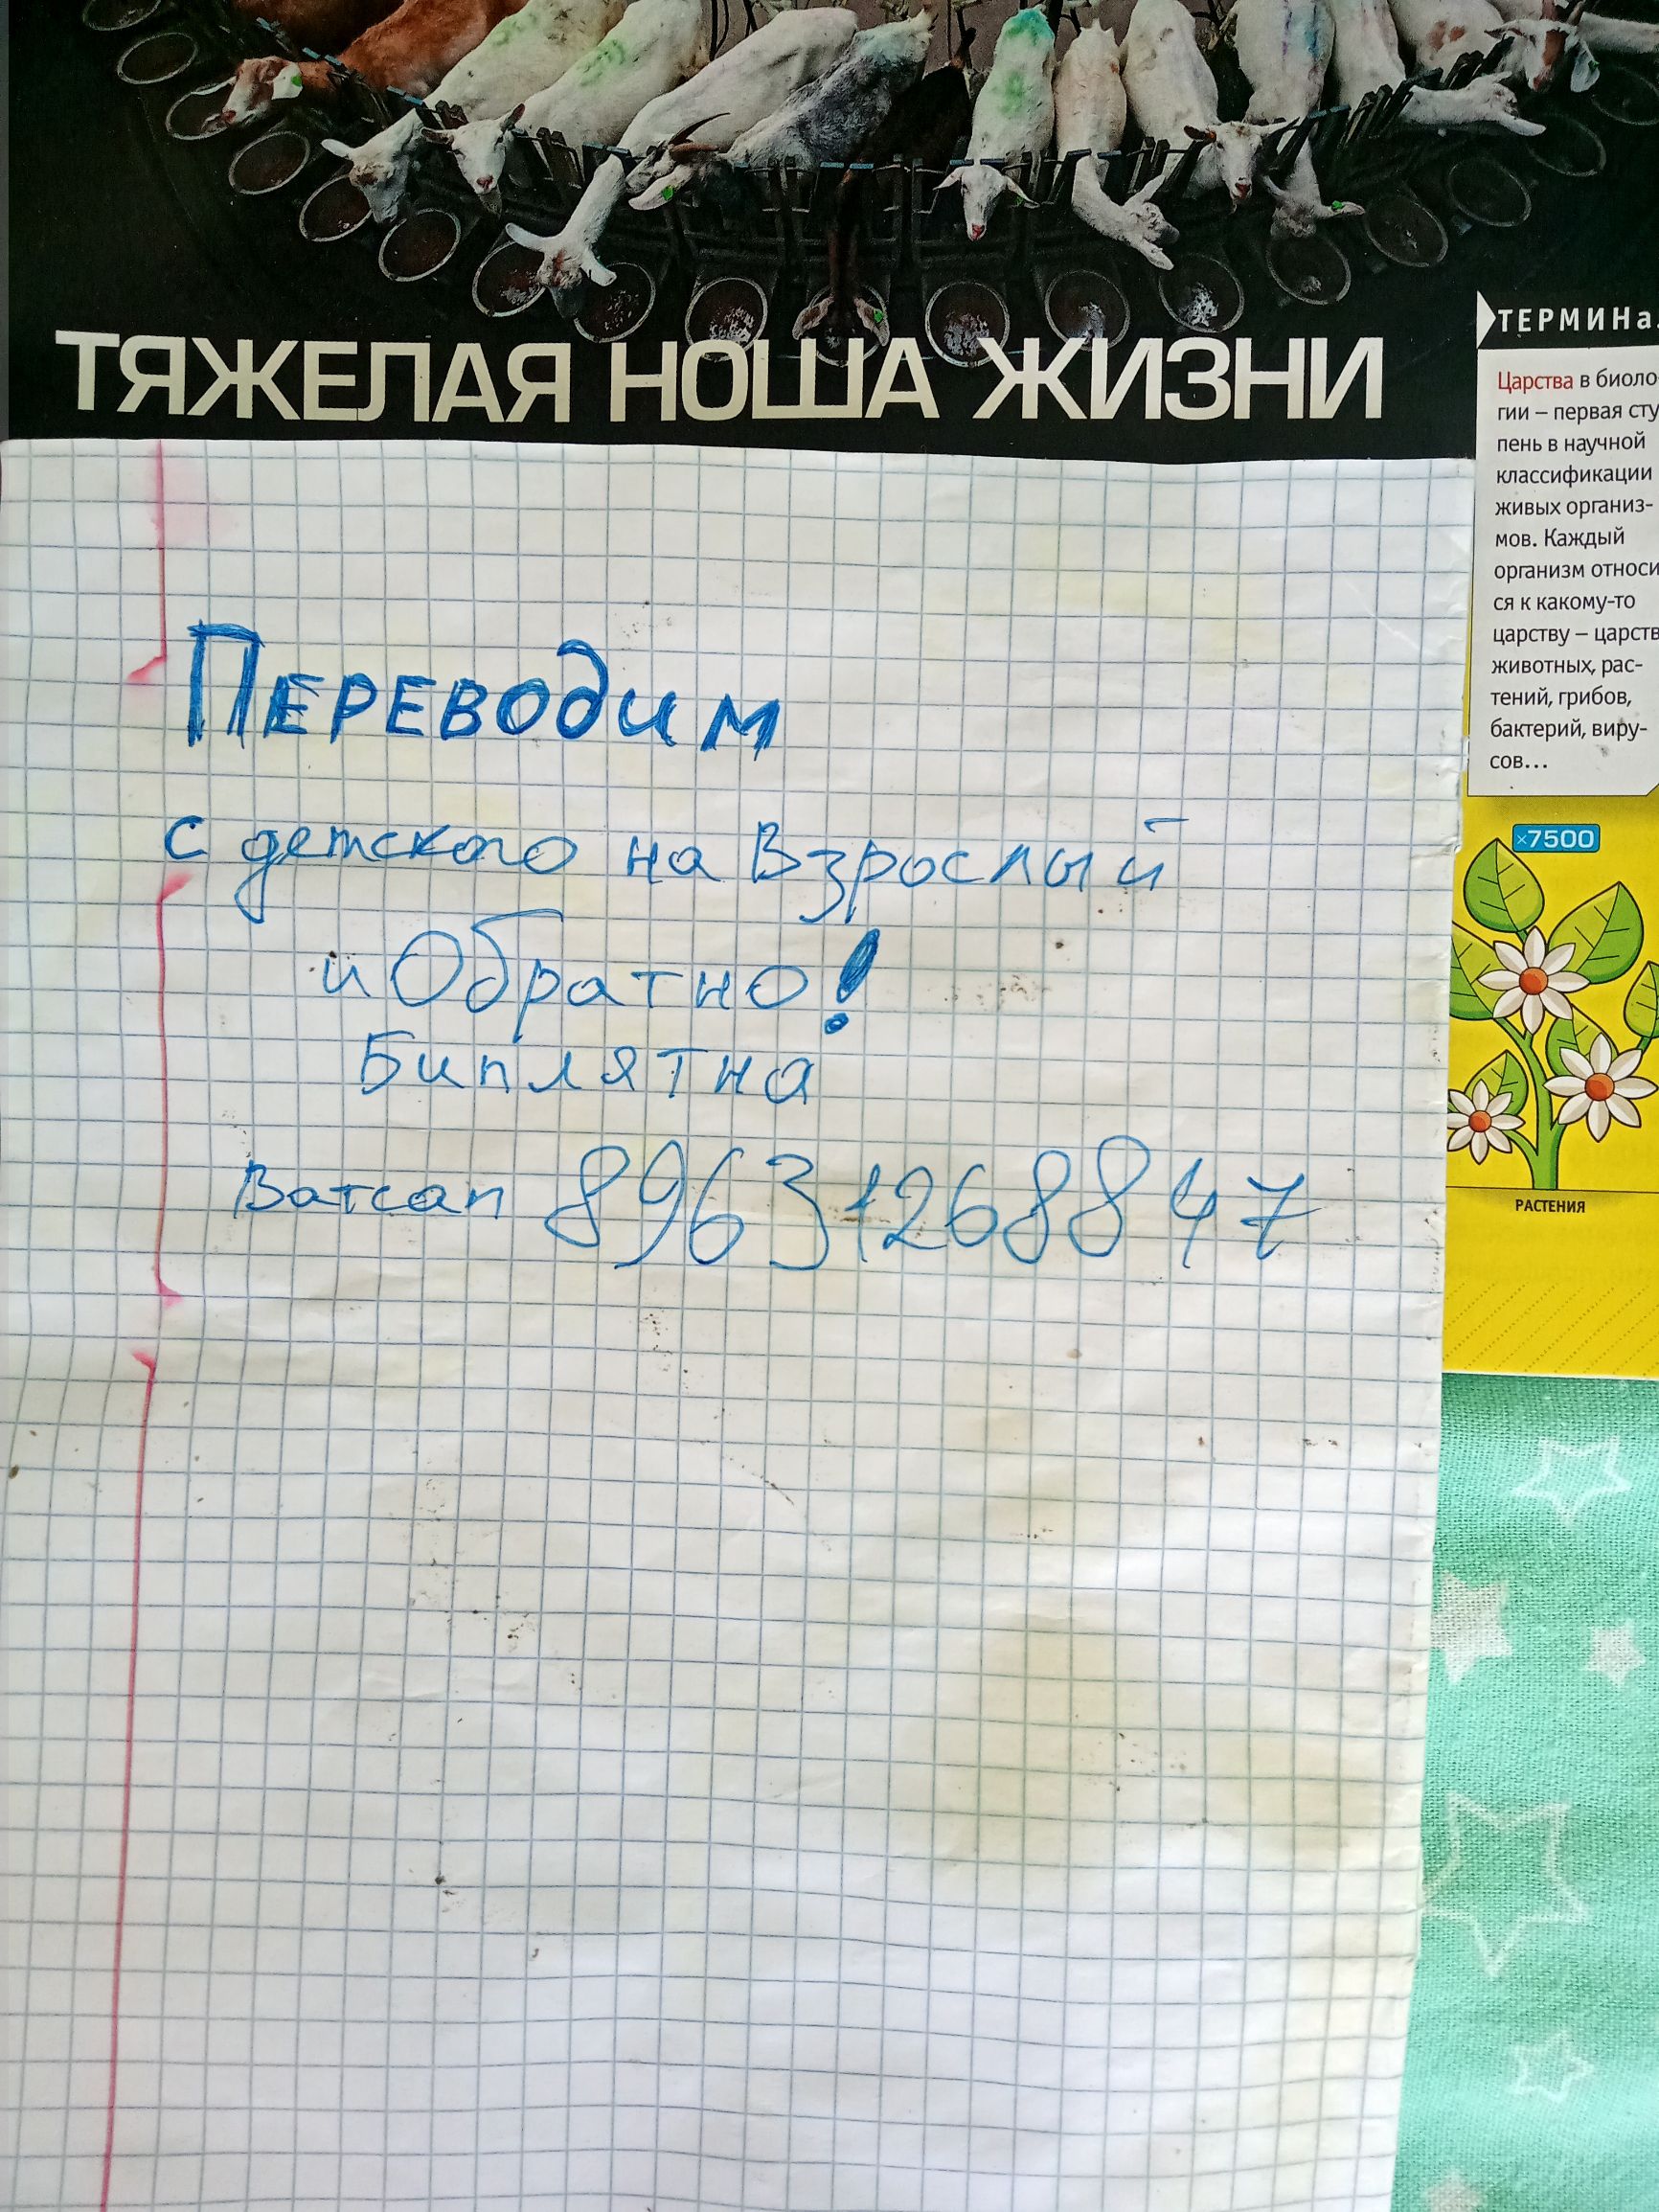 ТЯЖЕЛАЯ НОША ЖИЗНИ
ТЕРМИНа
Царства в биоло-
гии – первая сту
пень в научной
классификации
живых организ-
мов. Каждый
организм относи
ся к какому-то
царству – царств
животных, рас-
тений, грибов,
бактерий, виру-
сов...
×7500
РАСТЕНИЯ
Переводим
с детского на Взрослый
и Обратно!
Биплятна
Ватсап 89631268847